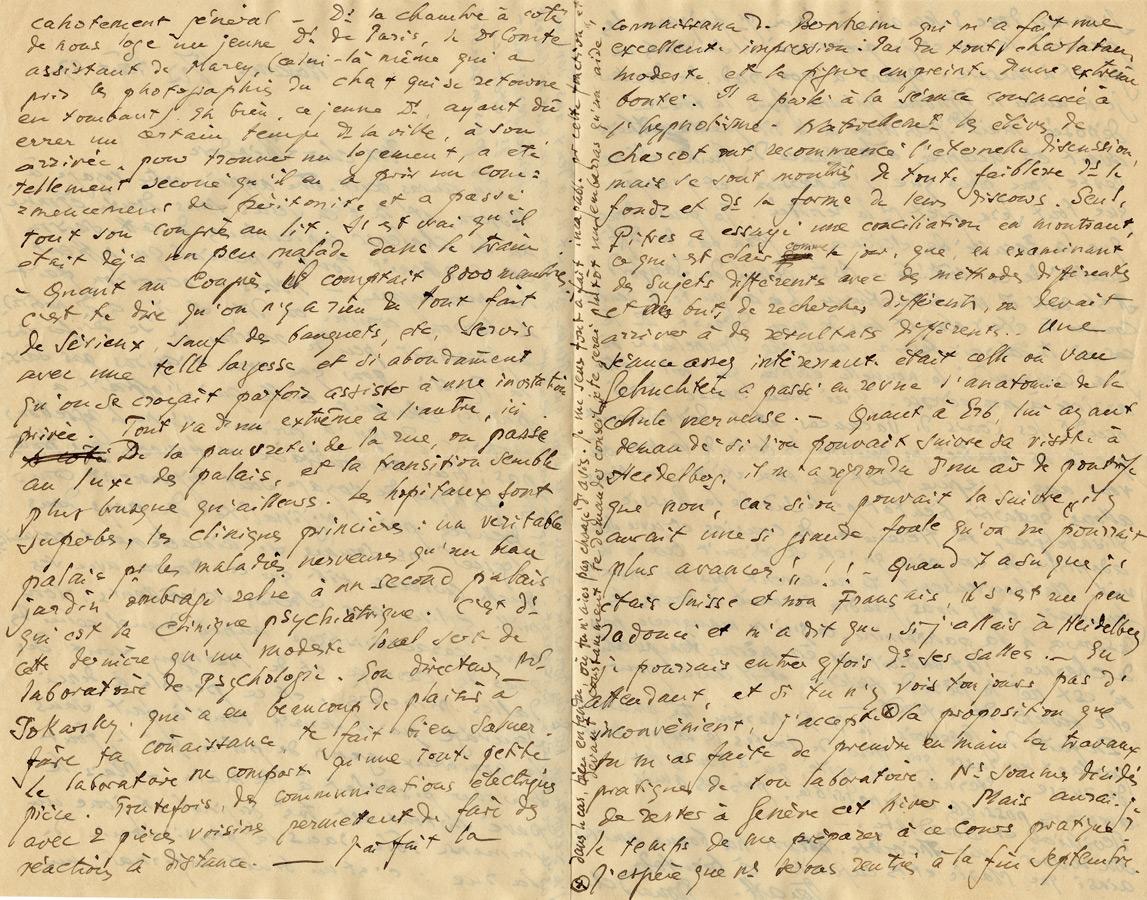 cahotement général — Ds la chambre à coté
de nous loge un jeune Dr de Paris, le Dr Comte
assistant de Marey, (celui-là même qui a
pris les photographies du chat qui se retourne
en tombant). Eh bien, ce jeune Dr, ayant dû
errer un certain temps ds la ville, à son
arrivée, pour trouver un logement, a été
tellement secoué qu'il en a pris un com=
mencement de péritonite et a passé
tout son congrès au lit. Il est vrai qu'il
était déja un peu malade dans le train
- Quant au Congrès, il comptait 8000 membres,
c'est te dire qu'on n'y a rien de tout fait
de sérieux, sauf des banquets, etc, servis
avec une telle largesse et si abondamment
qu'on se croyait parfois assister à une invitation
privée. Tout va d'un extrême à l'autre, ici
De la pauvreté de la rue, on passe
au luxe des palais, et la transition semble
plus brusque qu'ailleurs. Les hopitaux sont
superbes, les cliniques princières: un véritable
palais pr les maladies nerveuses qu'un beau
jardin ombragé relie à un second palais
qui est la clinique psychiatrique. C'est ds
cette dernière qu'un modeste local sert de
laboratoire de Psychologie. Son directeur,
Tokarsky, qui a eu beaucoup de plaisir à
faire ta connaissance, te fait bien saluer.
Le laboratoire ne comporte qu'une toute petite
pièce. Toutefois, des communications électriques
avec 2 pièces voisines permettent de faire des
réactions à distance. — J'ai fait la
connaissance de Bernheim qui m'a fait une
excellente impression: Pas du tout charlatan,
modeste et la figure empreinte d'une extrême
bonté. Il a parlé à la séance consacrée à
l'hypnotisme. Naturellement les élèves de
Charcot ont recommencé l'éternelle discussion,
mais se sont montrés de toute faiblesse ds le
fonds et ds la forme de leurs discours. Seul,
Pitres a essayé une conciliation en montrant,
ce qui est clair comme le jour, que, en examinant
des sujets différents avec des méthodes différentes
et des buts de recherches différents, on devait
arriver à des résultats différents. Une
séance assez intéressante était celle où van
Gehuchten a passé en revue l'anatomie de la
cellule nerveuse. — Quant à Erb, lui ayant
demandé si l'on pouvait suivre sa visite à
Heidelberg, il m'a répondu d'un air de pontife
que non, car si on pouvait la suivre, il y
aurait une si grande foule qu'on ne pourrait
plus avancer! ! ! - Quand il a su que je
étais Suisse et non Français, il s'est un peu
radouci et m'a dit que, si j'allais à Heidelberg
je pourrais entrer qqfois ds ses salles. — En
attendant, et si tu n'y vois toujours pas d'
inconvénient, j'accepte ⊗ la proposition que
tu m'as faite de prendre en main les travaux
pratiques de ton laboratoire. Ns sommes décidés
de rester à Genève cet hiver. Mais aurai-je
le temps de me préparer à ce cours pratique?
J'espère que ns serons rentrés à la fin Septembre.
⊗ dans le cas, bien entendu, où tu n'aies pas changé d'avis. Je me sens tout à fait incapable pr cette fonction, et
devant constamment te demander conseil, je te serai plutôt un embarras qu'un aide.